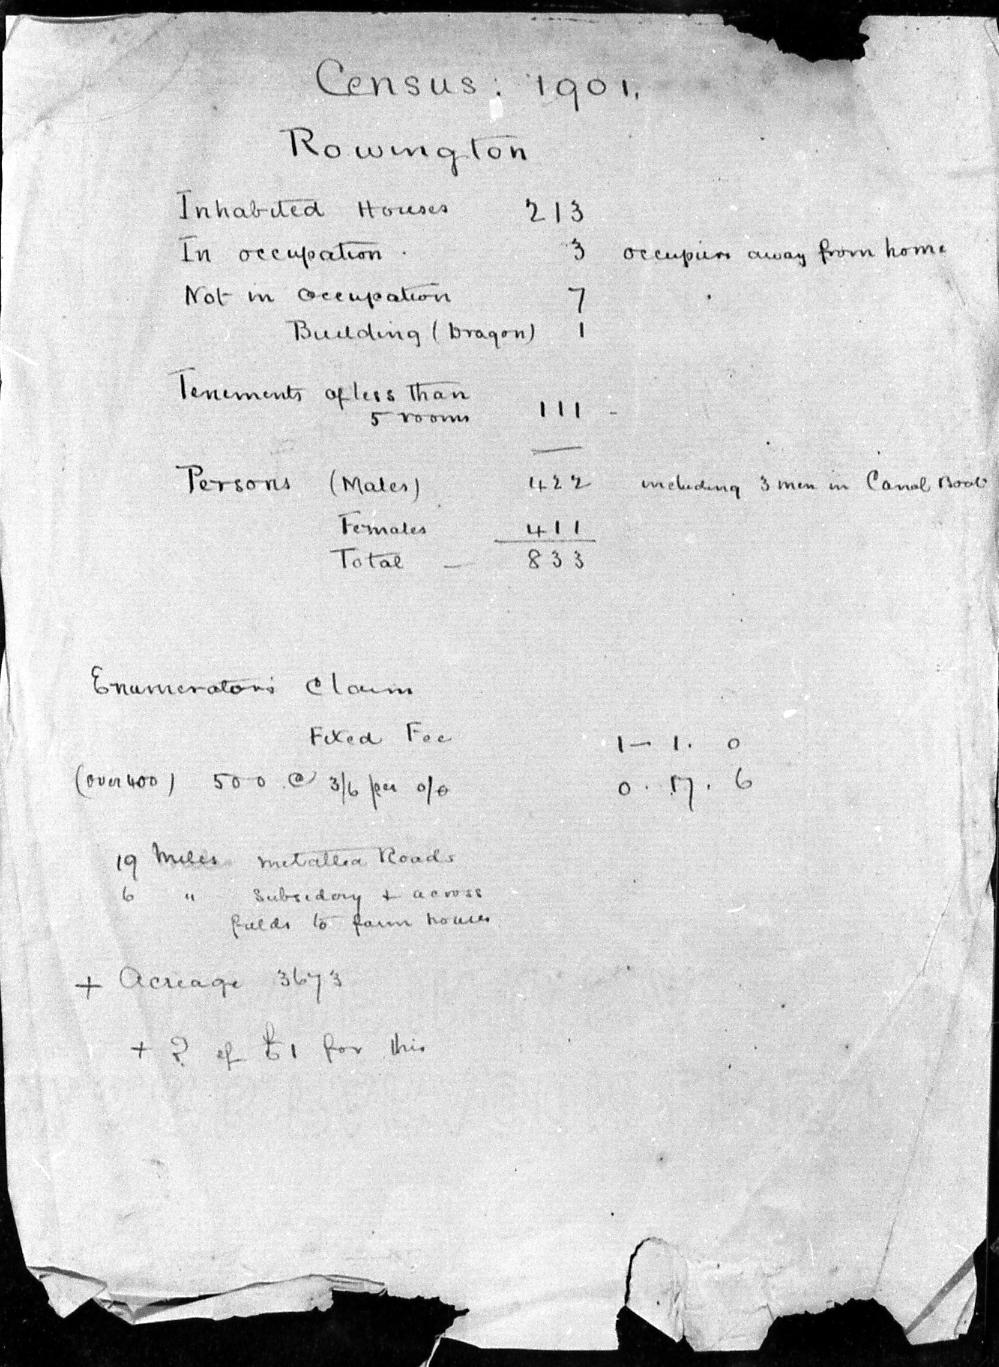 Census: 1901.
Rowington
Inhabited Houses 213
In occupation. 3 occupiers away from home
Not in occupation 7
Building (Dragon) 1
Tenements of less than
5 rooms 111 -
Persons (Males) 422 including 3 men in Canal Boat
Females 411
Total — 833
Enumerator's Claim
Fixed Fee 1 - 1. 0
(over 400) 500 @ 3/6 per o/o 0. 17. 6
19 Miles metalled Roads
6 " Subsidory + across
fields to farm houses
+ Acreage 3673
+ ? if £1 for this